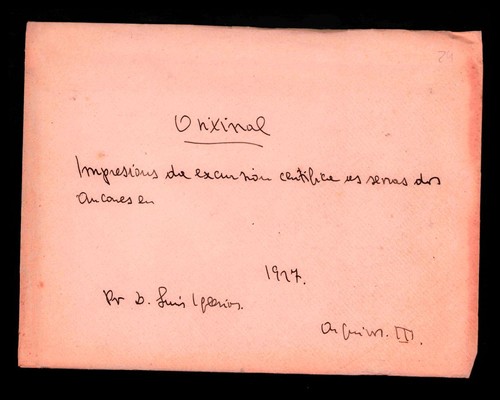 Orixinal
Impresions da excursión centífica as serras dos
Ancares en
1927.
Por D. Luis Iglesias.
Arquivos. III.
24